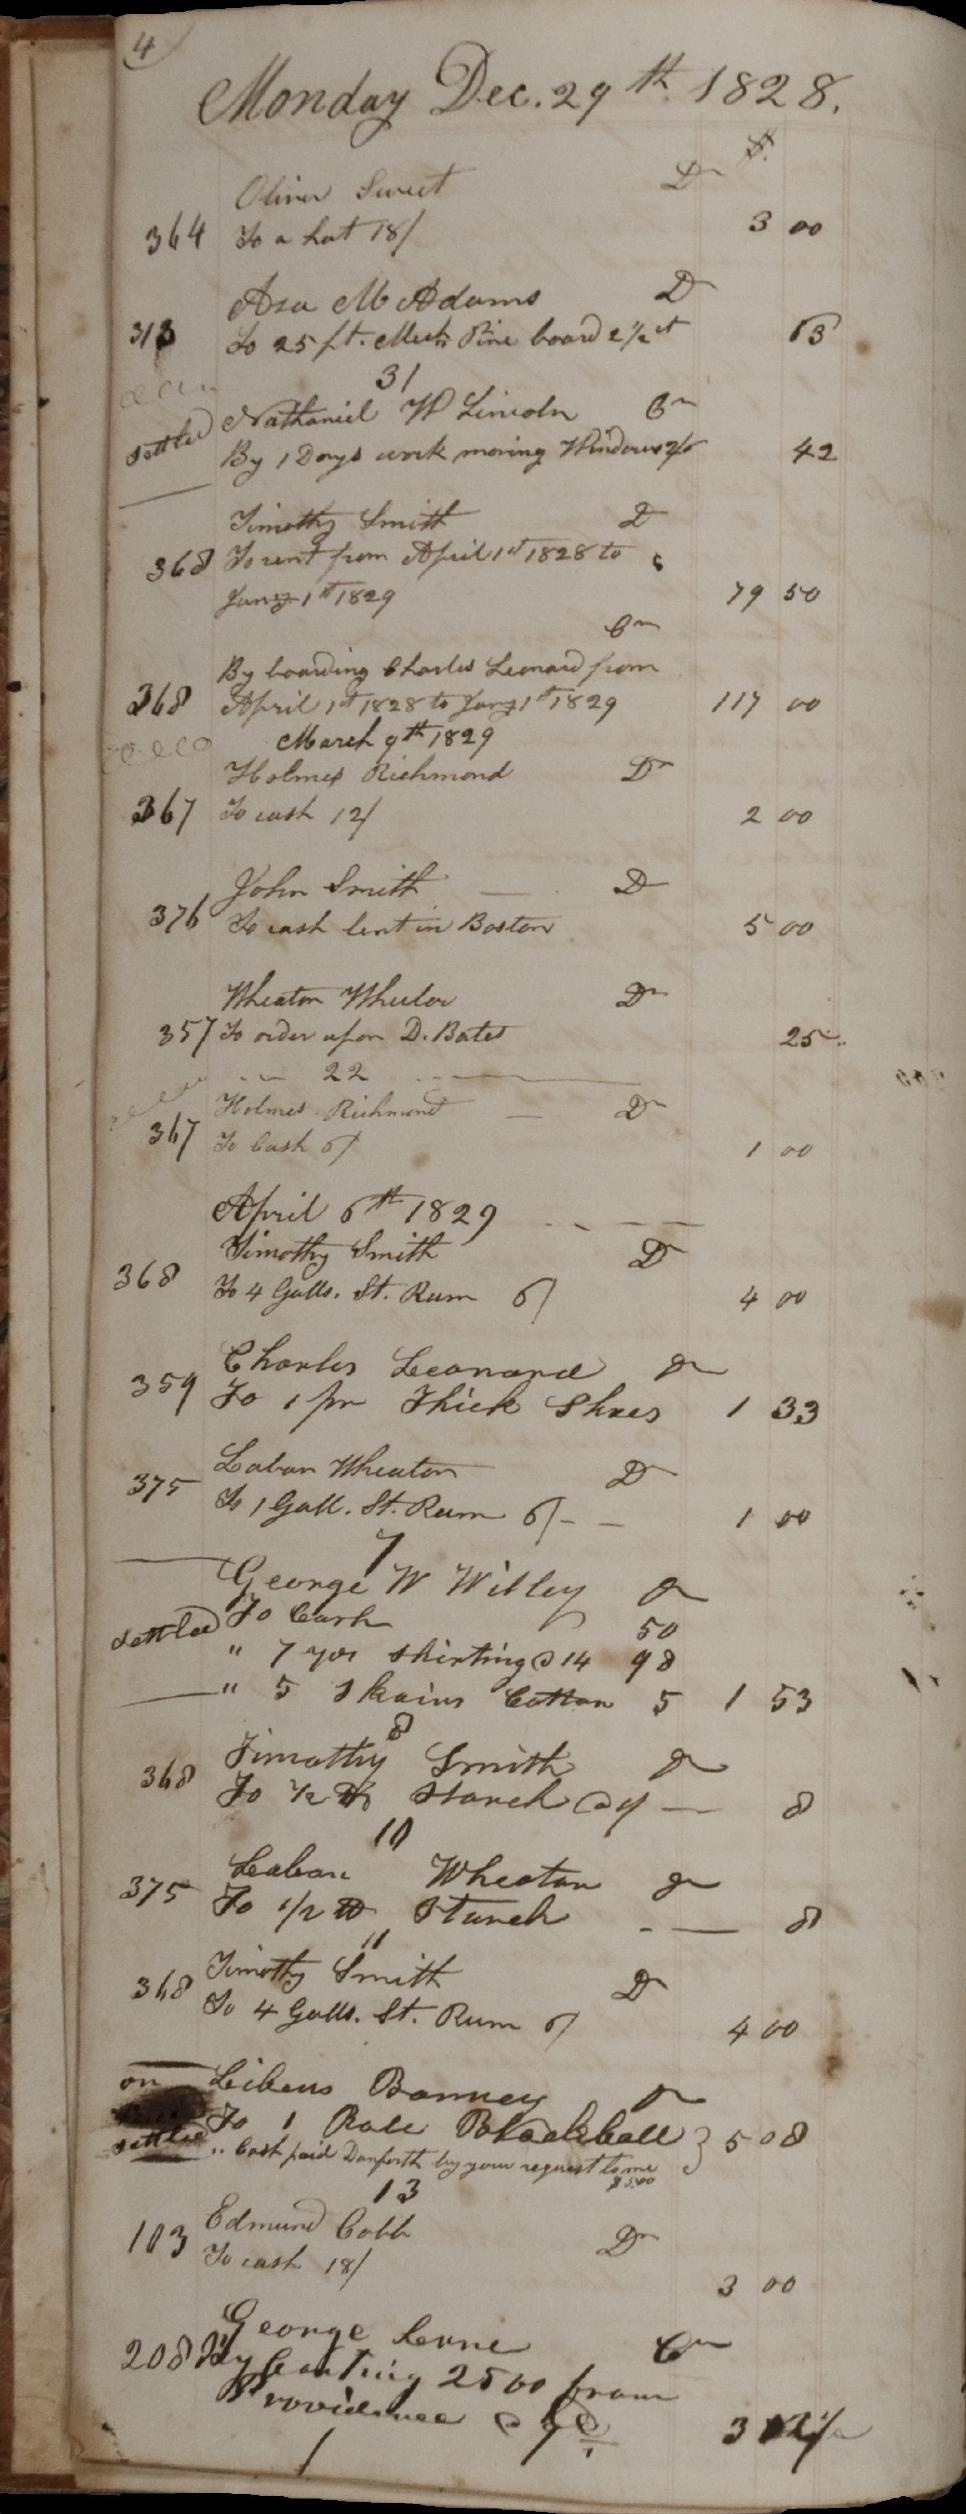 4
Monday Dec. 29th 1828.
$.
Oliver Sweet Dr
364 To a hat 18/ 3 00
Asa M Adams Dr
313 To 25 ft. Merch Pine board 2 1/2 ct 63
31
Nathaniel W Lincoln Cr
settled By 1 Days work moving Windows 2/6 42
Timothy Smith Dr
368 To rent from April 1st 1828 to
Jany 1st 1829 79 50
Cr
By boarding Charles Leonard from
368 April 1st 1828 to Jany 1st 1829 117 00
March 9th 1829
Holmes Richmond Dr
367 To cash 12/ 2 00
John Smith Dr
376 To cash lent in Boston 5 00
Wheaton Wheelor Dr
357 To order upon D. Bates 25
22
Holmes Richmond Dr
367 To Cash 6/ 1 00
April 6th 1829
Timothy Smith Dr
368 To 4 Galls. St. Rum 6/ 4 00
Charles Leonard Dr
359 To 1 pr Thick Shoes 1 33
Laban Wheaton Dr
375 To 1 Gall. St. Rum 6/ 1 00
7
George W Willey Dr
settled To Cash 50
" 7 yds shirting @ 14 98
" 5 Skains Cotton 5 1 53
8
Timothy Smith Dr
368 To 1/2 lb Starch 8
10
Laban Wheaton Dr
375 To 1/2 lb Starch 8
11
Timothy Smith Dr
368 To 4 Galls. St. Rum 6/ 4 00
on Libeus Bonney Dr
To 1 Blackball 5 08
settled " Cash paid Danforth by your request to me $5.00
13
Edmund Cobb Dr
103 To cash 18/ 3 00
George Cr
208 By Carting 2500 from
Providence 3